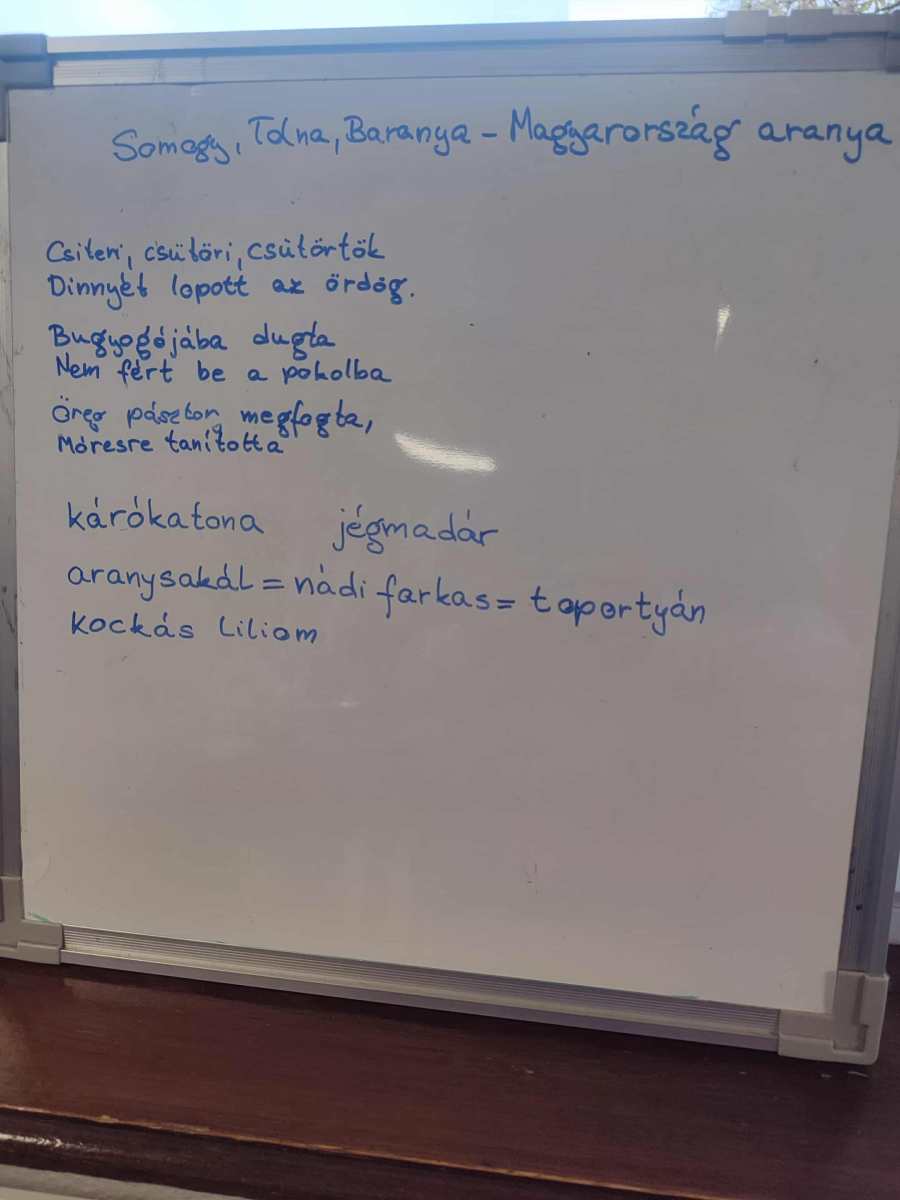 Somogy, Tolna, Baranya – Magyarország aranya
Csiteri, csütöri, csütörtök
Dinnyét lopott az ördög.
Bugyogójába dugta
Nem fért be a pokolba
Öreg pásztor megfogta,
Móresre tanította
kárókatona jégmadár
aranysakál = nádi farkas = toportyán
kockás liliom